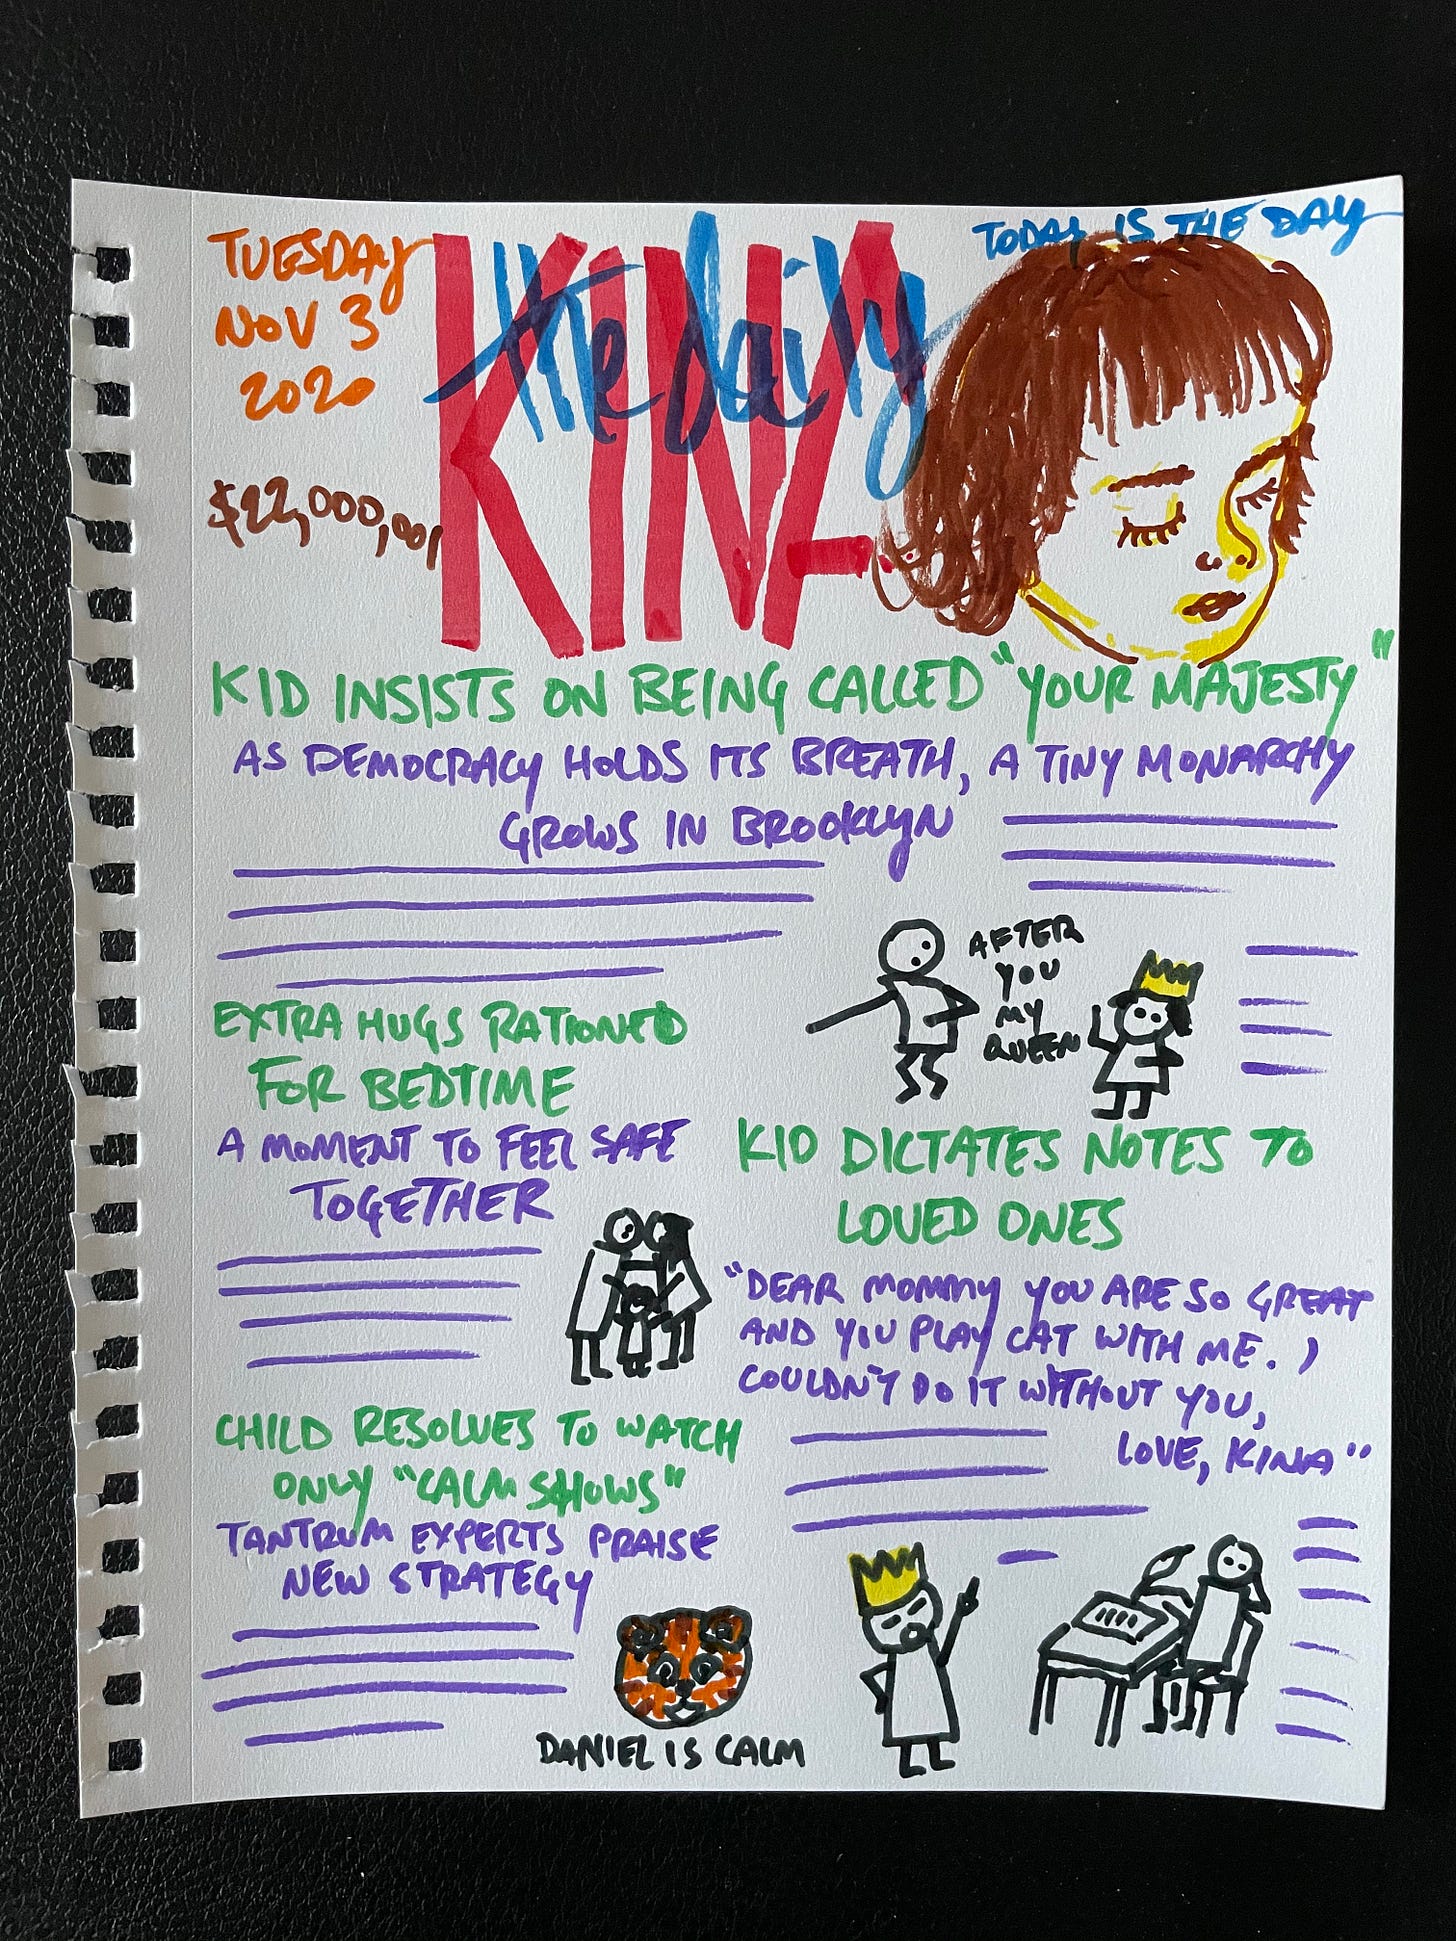 TUESDAY
NOV 3
2020
$22,000,001
the daily
KINA
TODAY IS THE DAY
KID INSISTS ON BEING CALLED "YOUR MAJESTY"
AS DEMOCRACY HOLDS ITS BREATH, A TINY MONARCHY
GROWS IN BROOKLYN
AFTER
YOU
MY
QUEEN
EXTRA HUGS RATIONED
FOR BEDTIME
A MOMENT TO FEEL SAFE
TOGETHER
KID DICTATES NOTES TO
LOVED ONES
"DEAR MOMMY YOU ARE SO GREAT
AND YOU PLAY CAT WITH ME. I
COULDN'T DO IT WITHOUT YOU,
LOVE, KINA"
CHILD RESOLVES TO WATCH
ONLY "CALM SHOWS"
TANTRUM EXPERTS PRAISE
NEW STRATEGY
DANIEL IS CALM